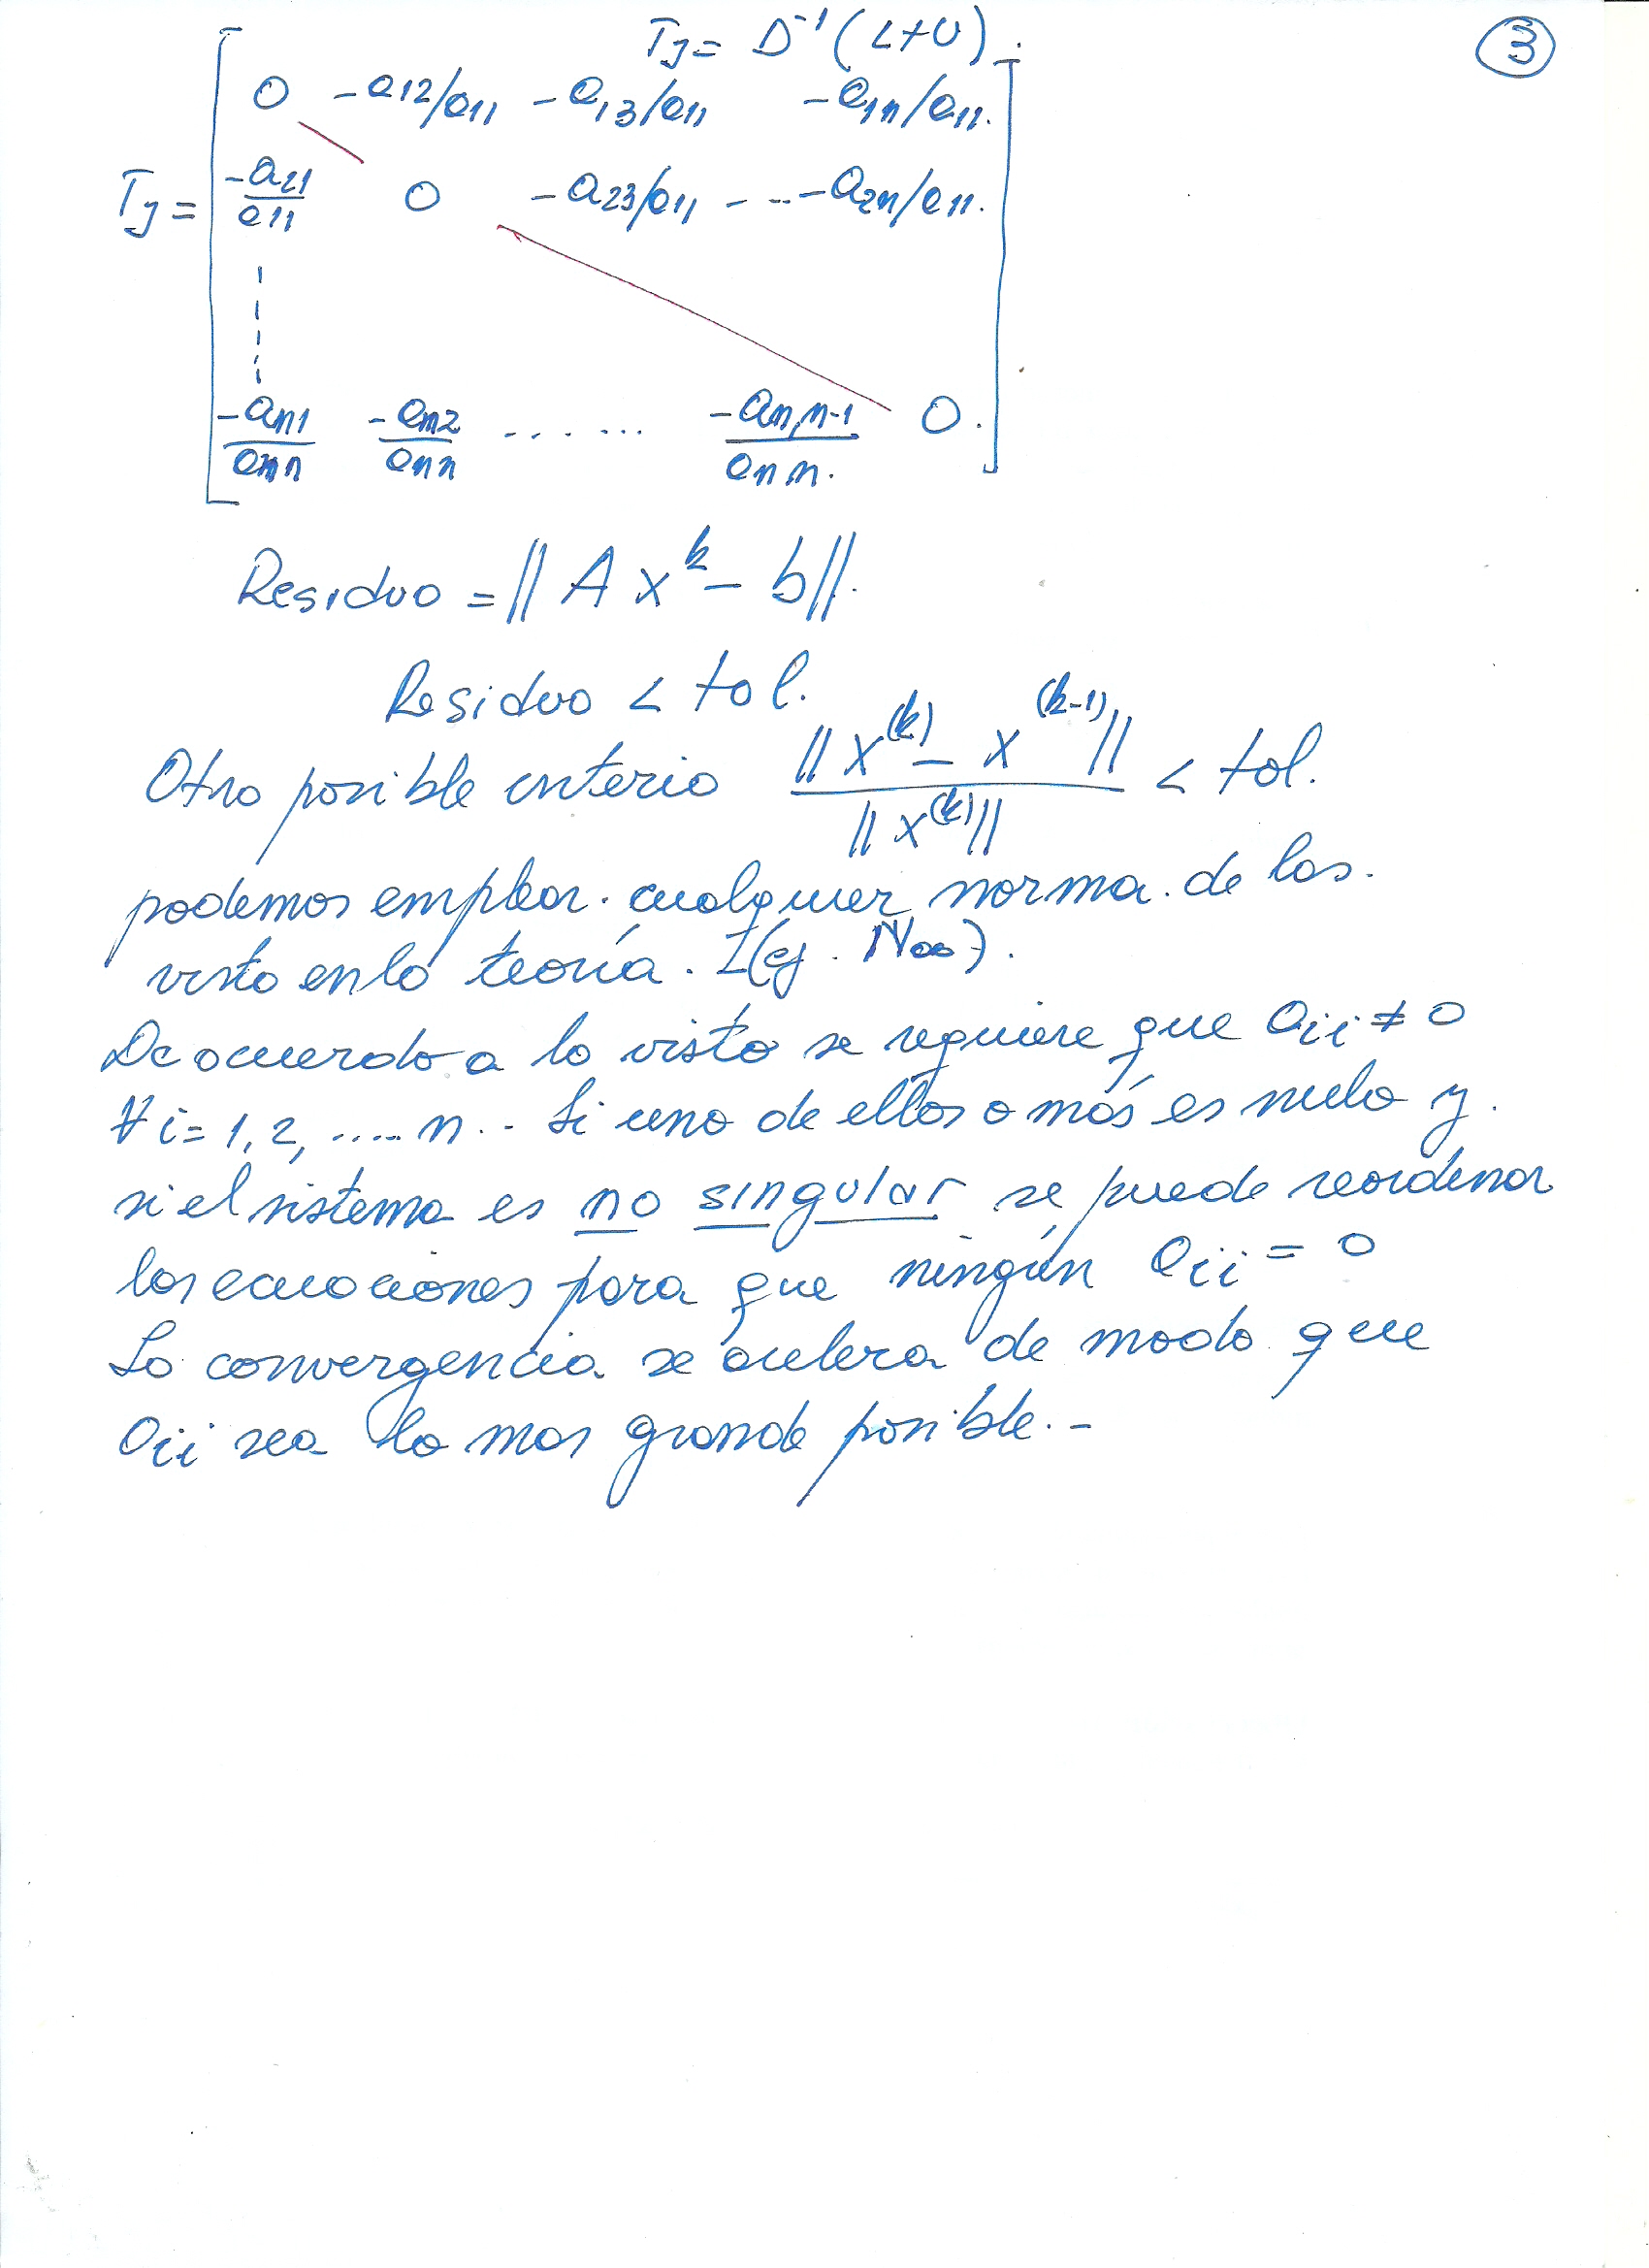 ③
Tj = D⁻¹ (L+U).
0 -a12/a11 -a13/a11 -a1n/a11.
Tj = -a21/a11 0 -a23/a11 - ... -a2n/a11.
-an1/ann -an2/ann ...... -an,n-1/ann. 0.
Residuo = || A x^k - b ||.
Residuo < tol.
Otro posible criterio || x^(k) - x^(k-1) || / || x^(k) || < tol.
podemos emplear. cualquier norma. de las.
visto en la teoría. (ej. N∞).
De acuerdo a lo visto se requiere que aii ≠ 0
∀ i = 1, 2, ..... n.. Si uno de ellos o más es nulo y.
si el sistema es no singular se puede reordenar
las ecuaciones para que ningún aii = 0
La convergencia se acelera de modo que
aii sea lo mas grande posible.-